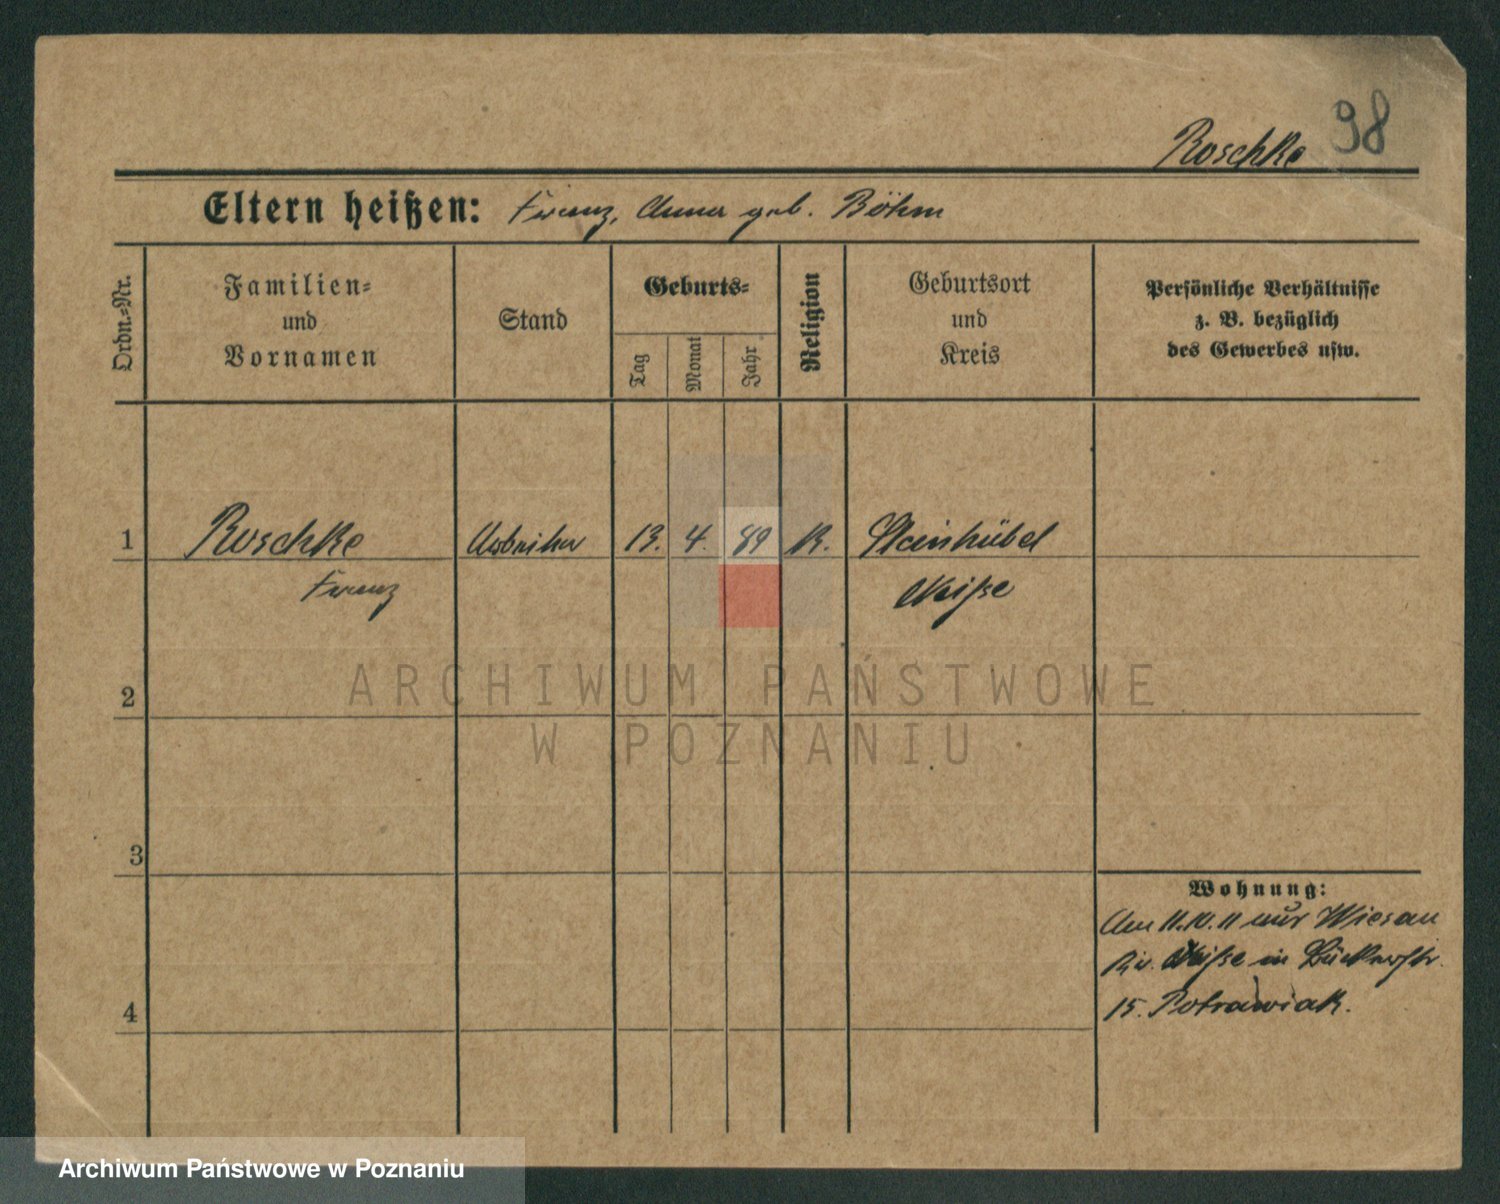 98
Roschke
Eltern heißen: Franz, Anna geb. Böhm
Ordn.-Nr.
Familien-
und
Vornamen
Stand
Geburts-
Tag
Monat
Jahr
Religion
Geburtsort
und
Kreis
Persönliche Verhältnisse
z. B. bezüglich
des Gewerbes usw.
1 Roschke Arbeiter 13. 4. 89 K. Steinhübel
Franz Neiße
2
ARCHIWUM PAŃSTWOWE
W POZNANIU
3
Wohnung:
Am 11.10.11 aus Wiesau
Kr. Neiße in Bäckerstr.
15. Potrawiak.
4
Archiwum Państwowe w Poznaniu